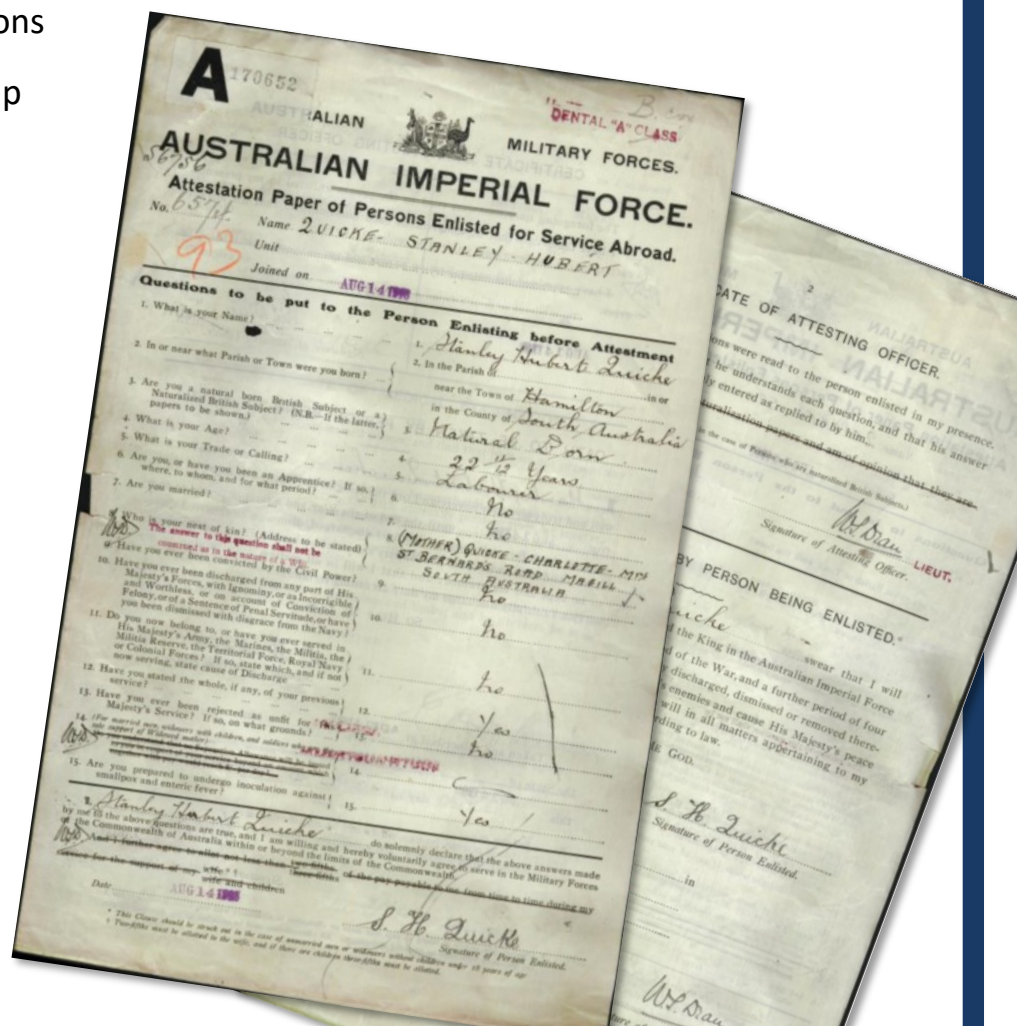 ons
p
A
170652
DENTAL "A" CLASS
ALIAN MILITARY FORCES.
AUSTRALIAN IMPERIAL FORCE.
56756
Attestation Paper of Persons Enlisted for Service Abroad.
No.
93
Name QUICKE - STANLEY - HUBERT
Unit
Joined on AUG 14
Questions to be put to the Person Enlisting before Attestment
1. What is your Name? 1. Stanley Hubert Quicke
2. In or near what Parish or Town were you born? 2. In the Parish of in or
near the Town of Hamilton
in the County of South Australia
3. Are you a natural born British Subject or a Naturalized British Subject? (N.B.—If the latter, papers to be shown.) 3. Natural Born
4. What is your Age? 4. 22 Years
5. What is your Trade or Calling? 5. Labourer
6. Are you, or have you been an Apprentice? If so, where, to whom, and for what period? 6. No
7. Are you married? 7. No
8. Who is your next of kin? (Address to be stated) 8. (MOTHER) QUICKE - CHARLOTTE - MRS
The answer to this question shall not be ST BERNARD'S ROAD MAGILL
construed as in the nature of a Will. SOUTH AUSTRALIA
9. Have you ever been convicted by the Civil Power? 9. No
10. Have you ever been discharged from any part of His
Majesty's Forces, with Ignominy, or as Incorrigible
and Worthless, or on account of Conviction of
Felony, or of a Sentence of Penal Servitude, or have
you been dismissed with disgrace from the Navy? 10. No
11. Do you now belong to, or have you ever served in
His Majesty's Army, the Marines, the Militia, the
Militia Reserve, the Territorial Force, Royal Navy
or Colonial Forces? If so, state which, and if not
now serving, state cause of Discharge 11. No
12. Have you stated the whole, if any, of your previous
service? 12. Yes
13. Have you ever been rejected as unfit for
Majesty's Service? If so, on what grounds? 13. No
14. (For married men, widowers with children, and soldiers who
sole support of Widowed mother)— 14.
15. Are you prepared to undergo inoculation against
smallpox and enteric fever? 15. Yes
I, Stanley Hubert Quicke do solemnly declare that the above answers made
by me to the above questions are true, and I am willing and hereby voluntarily agree to serve in the Military Forces
of the Commonwealth of Australia within or beyond the limits of the Commonwealth.
And I further agree to allot not less than two-fifths three-fifths of the pay payable to me from time to time during my
service for the support of my wife wife and children
Date AUG 14
S. H. Quicke
Signature of Person Enlisted.
* This Clause should be struck out in the case of unmarried men or widowers without children under 18 years of age
† Two-fifths must be allotted to the wife, and if there are children three-fifths must be allotted.
2
CATE OF ATTESTING OFFICER.
ons were read to the person enlisted in my presence.
he understands each question, and that his answer
ly entered as replied to by him.
uralization papers and am of opinion that they are
W.S. Dean LIEUT.
Signature of Attesting Officer.
BY PERSON BEING ENLISTED.*
uicke swear that I will
f the King in the Australian Imperial Force
d of the War, and a further period of four
y discharged, dismissed or removed there-
s enemies and cause His Majesty's peace
will in all matters appertaining to my
rding to law.
E GOD.
S. H. Quicke
Signature of Person Enlisted.
in
W.S. Dean